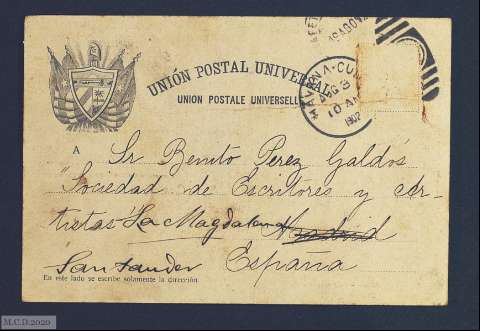 UNIÓN POSTAL UNIVERSAL
UNION POSTALE UNIVERSELLE
HAVANA·CUBA
AUG 3
10 AM
1902
A Sr Benito Perez Galdós
"Sociedad de Escritores y Ar-
tistas La Magdalena Madrid
Santander España
En este lado se escribe solamente la dirección.
M.C.D.2020